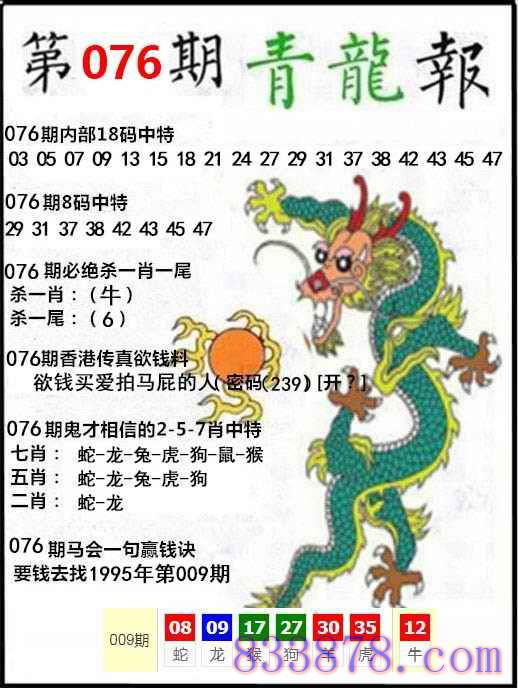 第076期 青龍報
076期内部18码中特
03 05 07 09 13 15 18 21 24 27 29 31 37 38 42 43 45 47
076期8码中特
29 31 37 38 42 43 45 47
076期必绝杀一肖一尾
杀一肖：(牛)
杀一尾：(6)
076期香港传真欲钱料
欲钱买爱拍马屁的人(密码(239)[开？]
076期鬼才相信的2-5-7肖中特
七肖： 蛇-龙-兔-虎-狗-鼠-猴
五肖： 蛇-龙-兔-虎-狗
二肖： 蛇-龙
076期马会一句赢钱诀
要钱去找1995年第009期
009期 08 09 17 27 30 35 12
蛇 龙 猴 狗 羊 虎 牛
833878.com